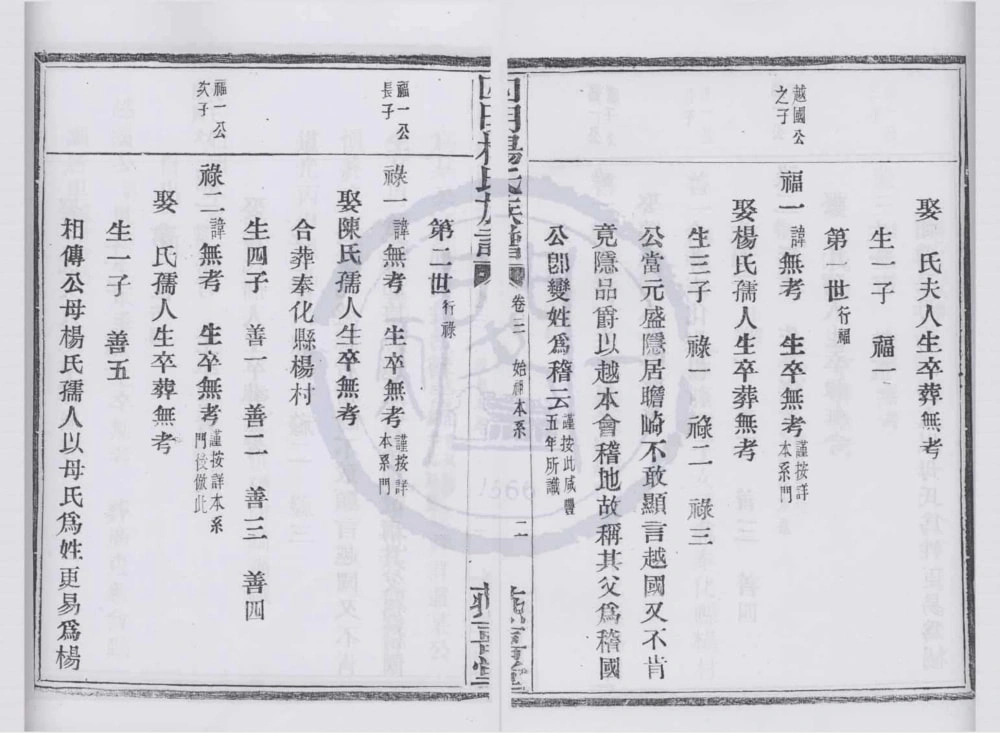 娶　氏夫人生卒葬無考
生一子　福一
第一世行福
越國公之子
福一諱無考　生卒無考謹按詳本系門
娶楊氏孺人生卒葬無考
生三子　祿一　祿二　祿三
公當元盛隱居瞻崎不敢顯言越國又不肯
竟隱品爵以越本會稽地故稱其父為稽國
公卽變姓為稽云謹按此咸豐五年所識
四明楊氏族譜　卷三　始祖本系　二
第二世行祿
福一公長子
祿一諱無考　生卒無考謹按詳本系門
娶陳氏孺人生卒無考
合葬奉化縣楊村
生四子　善一　善二　善三　善四
福一公次子
祿二諱無考　生卒無考謹按詳本系門後倣此
娶　氏孺人生卒葬無考
生一子　善五
相傳公母楊氏孺人以母氏爲姓更易爲楊
1566